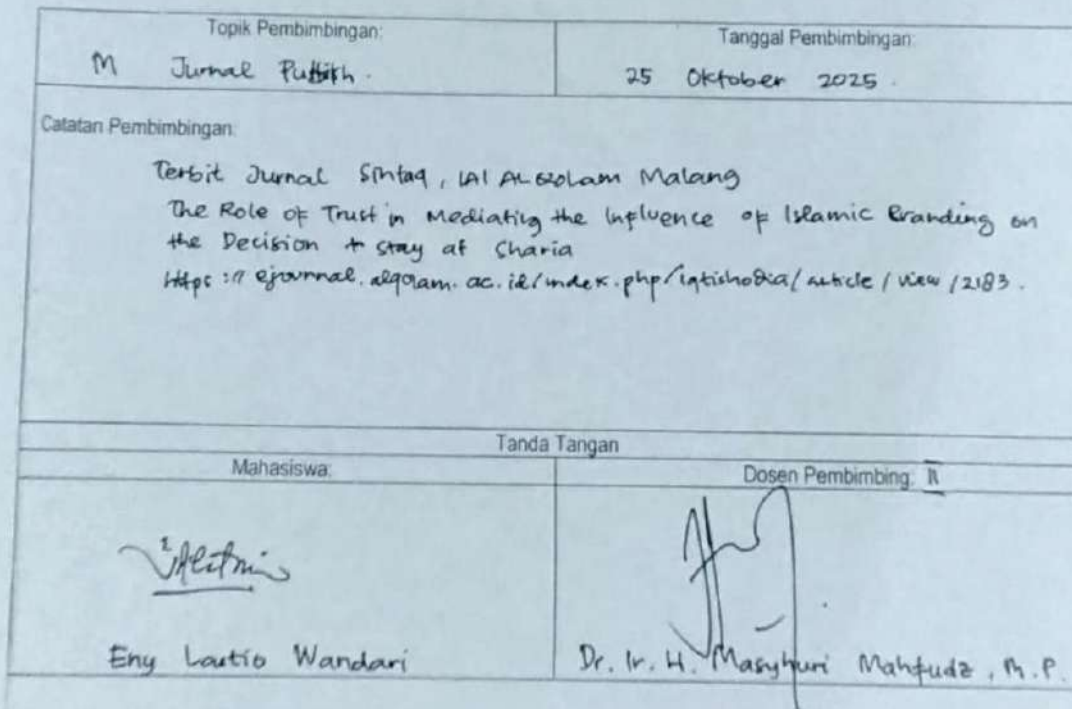 Topik Pembimbingan:
Tanggal Pembimbingan:
M Jurnal
25 Oktober 2025.
Catatan Pembimbingan:
Terbit Jurnal Sinta4, IAI AL Qolam Malang
The Role of Trust in Mediating the Influence of Islamic Branding on
the Decision to stay at Sharia
https://ejournal.alqolam.ac.id/index.php/iqtishodia/article/view/2183.
Tanda Tangan
Mahasiswa:
Dosen Pembimbing: II
Eny Wandari
Dr. Ir. H. Masyhuri Mahfudz, M.P.